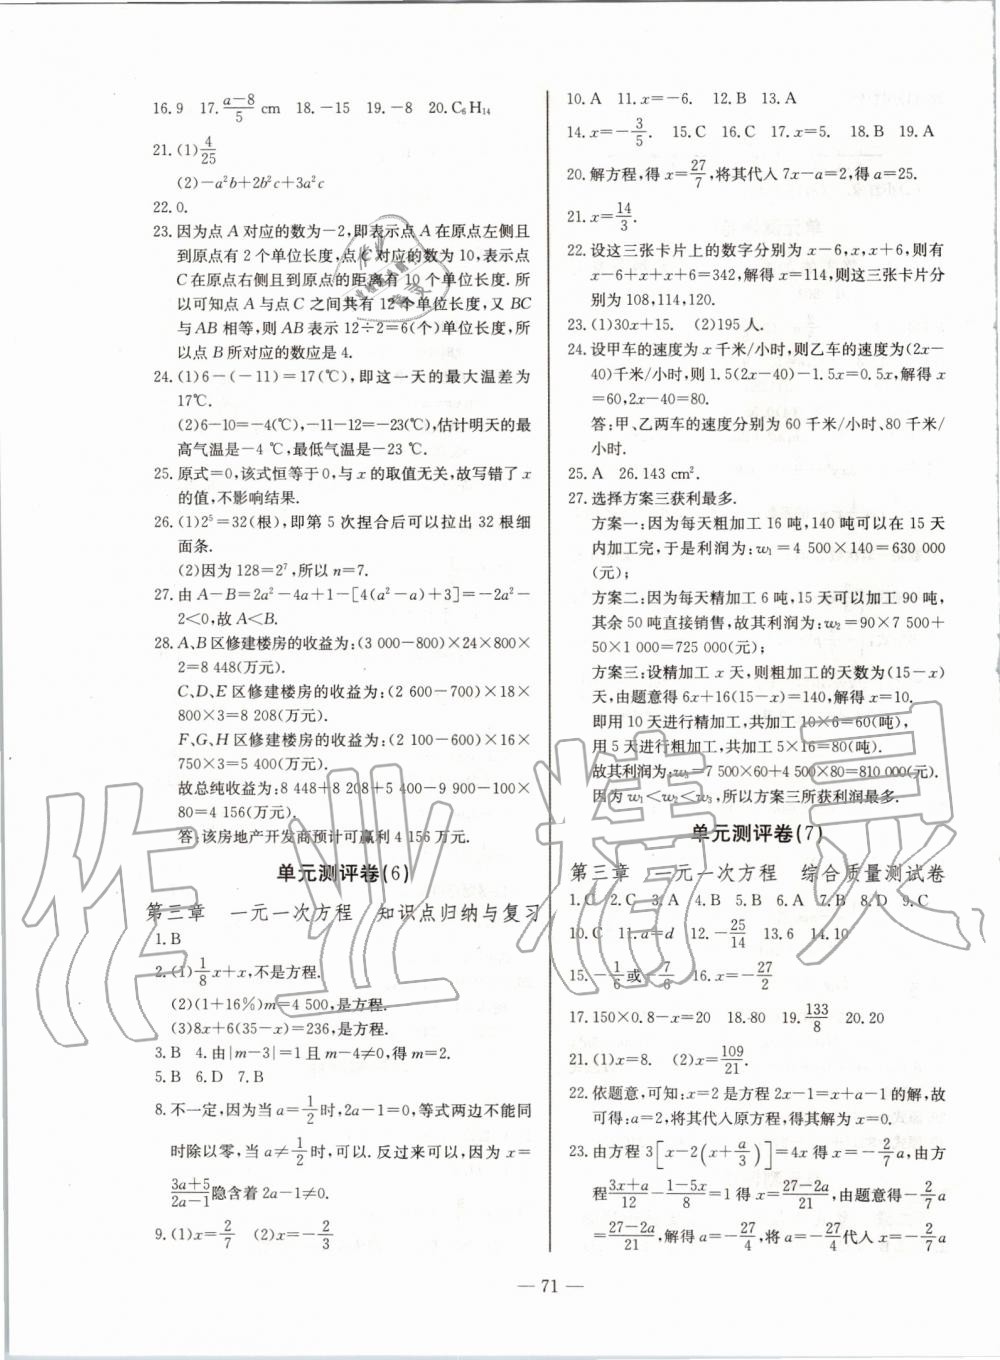 16.9　17.(a−8)/5 cm　18.−15　19.−8　20.C₆H₁₄
21.(1)4/25
(2)−a²b+2b²c+3a²c
22.0.
23.因为点 A 对应的数为−2,即表示点 A 在原点左侧且
到原点有 2 个单位长度,点 C 对应的数为 10,表示点
C 在原点右侧且到原点的距离有 10 个单位长度.所
以可知点 A 与点 C 之间共有 12 个单位长度,又 BC
与 AB 相等,则 AB 表示 12÷2=6(个)单位长度,所
以点 B 所对应的数应是 4.
24.(1)6−(−11)=17(℃),即这一天的最大温差为
17℃.
(2)6−10=−4(℃),−11−12=−23(℃),估计明天的最
高气温是−4 ℃,最低气温是−23 ℃.
25.原式=0,该式恒等于 0,与 x 的取值无关,故写错了 x
的值,不影响结果.
26.(1)2⁵=32(根),即第 5 次捏合后可以拉出 32 根细
面条.
(2)因为 128=2⁷,所以 n=7.
27.由 A−B=2a²−4a+1−[4(a²−a)+3]=−2a²−
2<0,故 A<B.
28.A、B 区修建楼房的收益为:(3 000−800)×24×800×
2=8 448(万元).
C、D、E 区修建楼房的收益为:(2 600−700)×18×
800×3=8 208(万元).
F、G、H 区修建楼房的收益为:(2 100−600)×16×
750×3=5 400(万元).
故总纯收益为:8 448+8 208+5 400−9 900−100×
80=4 156(万元).
答:该房地产开发商预计可赢利 4 156 万元.
单元测评卷(6)
第三章　一元一次方程　知识点归纳与复习
1.B
2.(1)1/8x+x,不是方程.
(2)(1+16%)m=4 500,是方程.
(3)8x+6(35−x)=236,是方程.
3.B　4.由|m−3|=1且 m−4≠0,得 m=2.
5.B　6.D　7.B
8.不一定,因为当 a=1/2时,2a−1=0,等式两边不能同
时除以零,当 a≠1/2时,可以.反过来可以,因为 x=
(3a+5)/(2a−1)隐含着 2a−1≠0.
9.(1)x=2/7　(2)x=−2/3
10.A　11.x=−6.　12.B　13.A
14.x=−3/5.　15.C　16.C　17.x=5.　18.B　19.A
20.解方程,得 x=27/7,将其代入 7x−a=2,得 a=25.
21.x=14/3.
22.设这三张卡片上的数字分别为 x−6,x,x+6,则有
x−6+x+x+6=342,解得 x=114,则这三张卡片分
别为 108,114,120.
23.(1)30x+15.　(2)195 人.
24.设甲车的速度为 x 千米/小时,则乙车的速度为(2x−
40)千米/小时,则 1.5(2x−40)−1.5x=0.5x,解得 x
=60,2x−40=80.
答:甲、乙两车的速度分别为 60 千米/小时、80 千米/
小时.
25.A　26.143 cm².
27.选择方案三获利最多.
方案一:因为每天粗加工 16 吨,140 吨可以在 15 天
内加工完,于是利润为:w₁=4 500×140=630 000
(元);
方案二:因为每天精加工 6 吨,15 天可以加工 90 吨,
其余 50 吨直接销售,故其利润为:w₂=90×7 500+
50×1 000=725 000(元);
方案三:设精加工 x 天,则粗加工的天数为(15−x)
天,由题意得 6x+16(15−x)=140,解得 x=10.
即用 10 天进行精加工,共加工 10×6=60(吨),
用 5 天进行粗加工,共加工 5×16=80(吨).
故其利润为:w₃=7 500×60+4 500×80=810 000(元).
因为 w₁<w₂<w₃,所以方案三所获利润最多.
单元测评卷(7)
第三章　一元一次方程　综合质量测试卷
1.C　2.C　3.A　4.B　5.B　6.A　7.B　8.D　9.C
10.C　11.a=d　12.−25/14　13.6　14.10
15.−1/6或−7/6　16.x=−27/2
17.150×0.8−x=20　18.80　19.133/8　20.20
21.(1)x=8.　(2)x=109/21.
22.依题意,可知:x=2 是方程 2x−1=x+a−1 的解,故
可得:a=2,将其代入原方程,得其解为 x=0.
23.由方程 3[x−2(x+a/3)]=4x 得 x=−2/7a,由方
程(3x+a)/12−(1−5x)/8=1 得 x=(27−2a)/21,由题意得−2/7a
=(27−2a)/21,解得 a=−27/4,将 a=−27/4代入 x=−2/7a
— 71 —
作业精灵